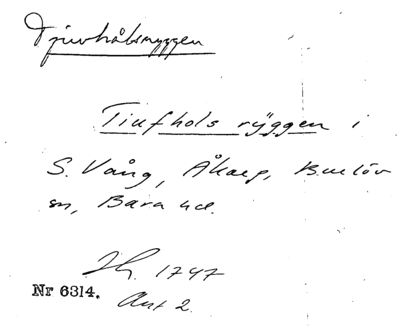 Djurhålsryggen
Tiufhols rÿggen i
S. Vång, Åkarp, Burlöv
sn, Bara hd.
Jb. 1747
Nr 6314. Ant 2.